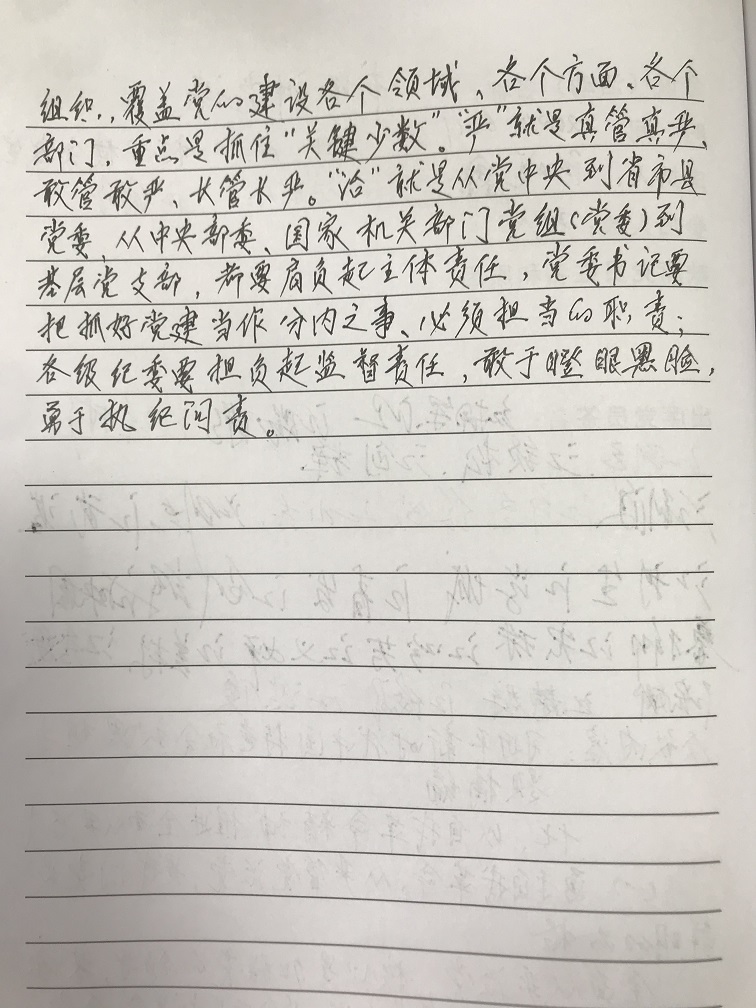 组织，覆盖党的建设各个领域、各个方面、各个
部门，重点是抓住“关键少数”。“严”就是真管真严、
敢管敢严、长管长严。“治”就是从党中央到省市县
党委，从中央部委、国家机关部门党组(党委)到
基层党支部，都要肩负起主体责任，党委书记要
把抓好党建当作分内之事、必须担当的职责；
各级纪委要担负起监督责任，敢于瞪眼黑脸，
勇于执纪问责。